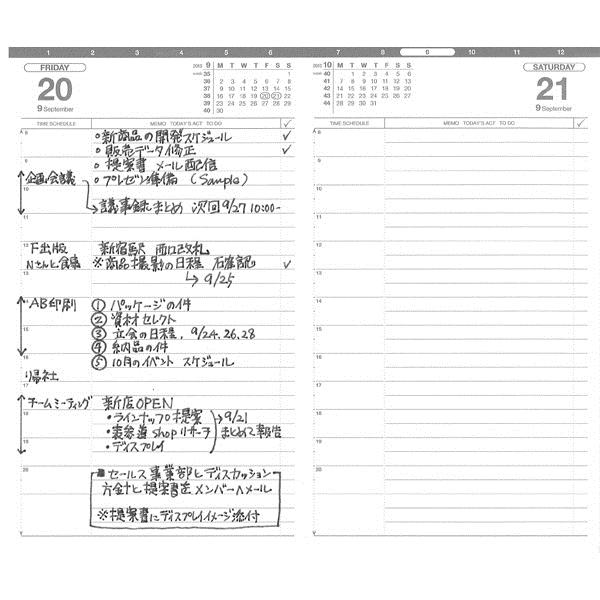 1 2 3 4 5 6
FRIDAY
20
9 September
2013 9 M T W T F S S
week 35 1
36 2 3 4 5 6 7 8
37 9 10 11 12 13 14 15
38 16 17 18 19 20 21 22
39 23 24 25 26 27 28 29
40 30
TIME SCHEDULE MEMO TODAY'S ACT TO DO ✓
A 8
○新商品の開発スケジュール ✓
○販売データ修正 ✓
○提案書 メール配信
企画会議 ○プレゼン準備 (Sample)
→議事録まとめ 次回9/27 10:00-
11
12
F出版 新宿駅 西口改札
Nさんと食事 ※商品撮影の日程 確認 ✓
13
→9/25
AB印刷 ①パッケージの件
②資材セレクト
15 ③立会の日程, 9/24, 26, 28
④納品の件
16 ⑤10月のイベント スケジュール
帰社
チームミーティング 新店OPEN
・ラインナップ提案 →9/21
18 ・表参道shopリサーチ まとめて報告
19 ・ディスプレイ
20
■セールス事業部とディスカッション
方針と提案書をメンバーへメール
※提案書にディスプレイイメージ添付
7 8 9 10 11 12
2013 10 M T W T F S S
week 40 1 2 3 4 5 6
41 7 8 9 10 11 12 13
42 14 15 16 17 18 19 20
43 21 22 23 24 25 26 27
44 28 29 30 31
SATURDAY
21
9 September
TIME SCHEDULE MEMO TODAY'S ACT TO DO ✓
A 8
9
10
11
12
13
14
15
16
17
18
19
20